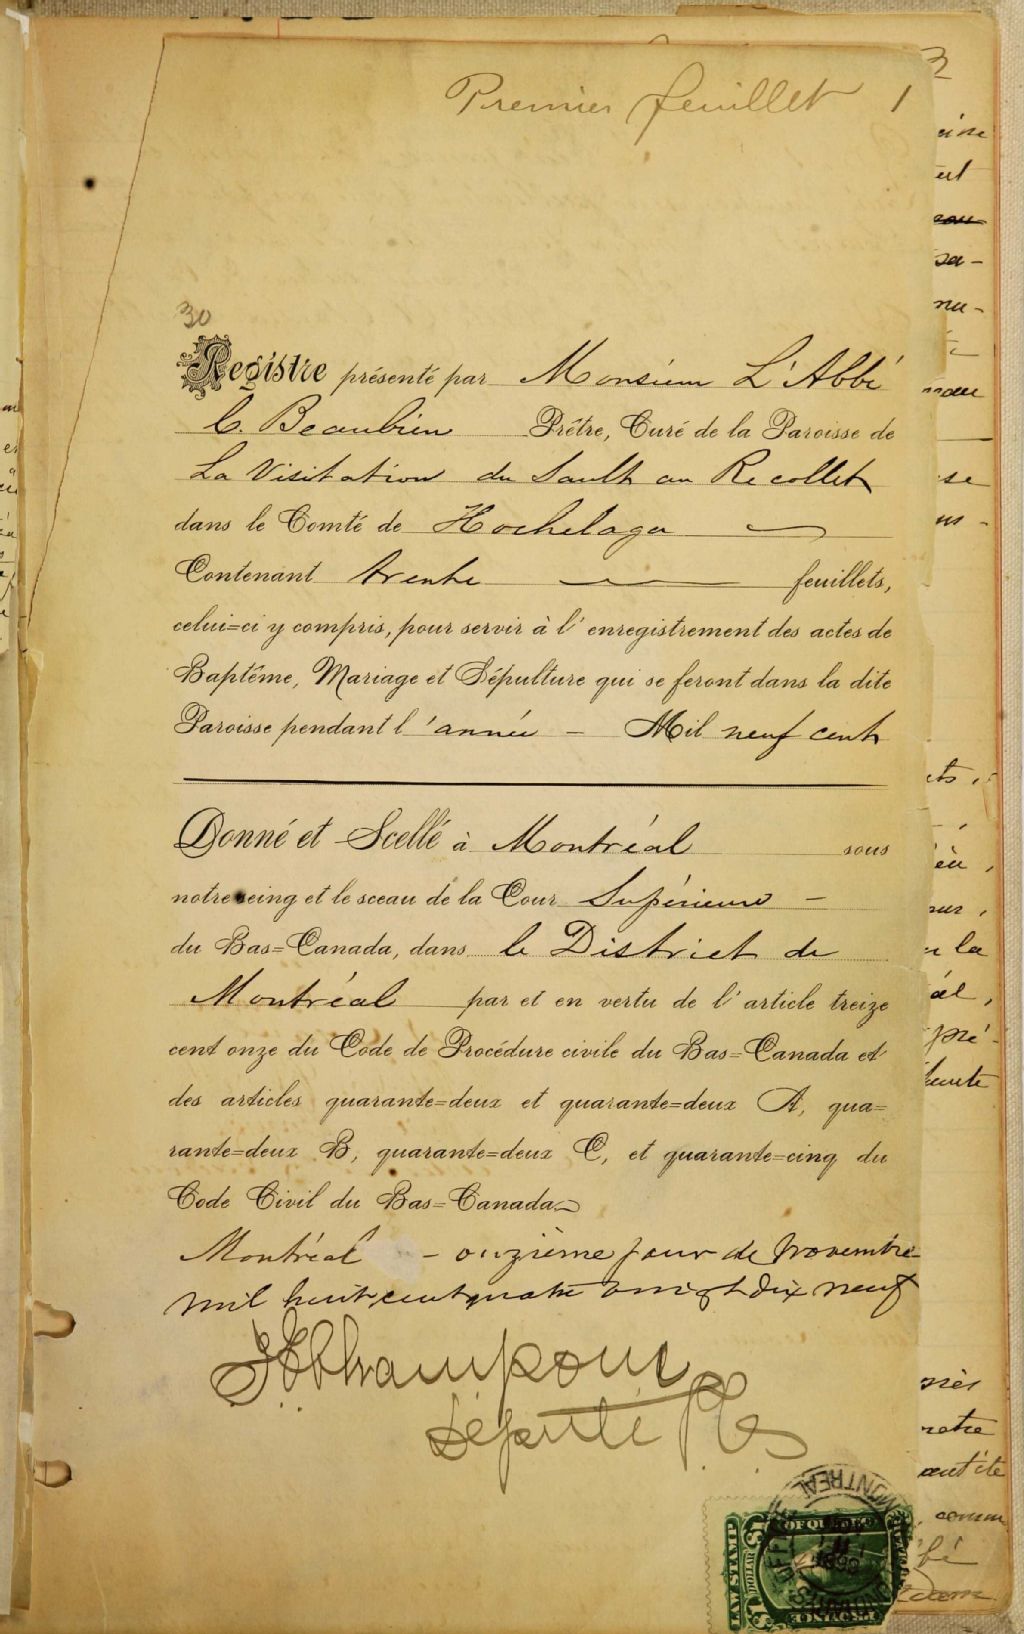 Premier feuillet 1
30
Registre présenté par Monsieur L'Abbé
C. Beaubien Prêtre, Curé de la Paroisse de
La Visitation du Sault au Recollet
dans le Comté de Hochelaga
Contenant trente feuillets,
celui=ci y compris, pour servir à l'enregistrement des actes de
Baptême, Mariage et Sépulture qui se feront dans la dite
Paroisse pendant l'année - Mil neuf cent
Donné et Scellé à Montréal sous
notre seing et le sceau de la Cour Supérieure -
du Bas=Canada, dans le District de
Montréal par et en vertu de l'article treize
cent onze du Code de Procédure civile du Bas=Canada et
des articles quarante=deux et quarante=deux A, qua=
rante=deux B, quarante=deux C, et quarante=cinq du
Code Civil du Bas=Canada
Montréal - onzième jour de Novembre
mil huit cent quatre vingt dix neuf
Député
MONTREAL
LAW STAMP
$1 DOLLAR $1